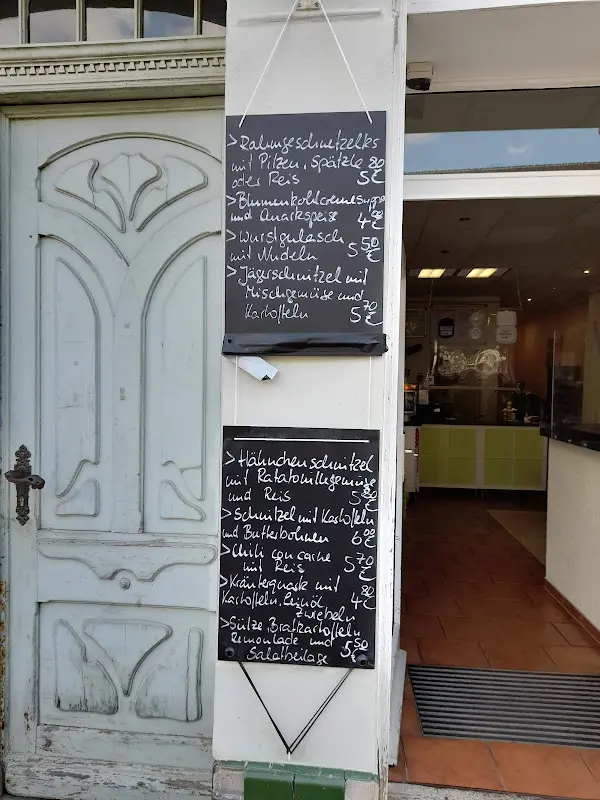 > Rahmgeschnetzeltes
mit Pilzen, Spätzle
oder Reis 5 80 €
> Blumenkohlcremesuppe
und Quarkspeise 4 00 €
> Wurstgulasch
mit Nudeln 5 50 €
> Jägerschnitzel mit
Mischgemüse und
Kartoffeln 5 70 €
> Hähnchenschnitzel
mit Ratatouillegemüse
und Reis 5 80 €
> Schnitzel mit Kartoffeln
und Butterbohnen 6 00 €
> Chili con carne
mit Reis 5 70 €
> Kräuterquark mit
Kartoffeln, Leinöl 4 80 €
Zwiebeln
> Sülze, Bratkartoffeln
Remoulade und 5 50 €
Salatbeilage